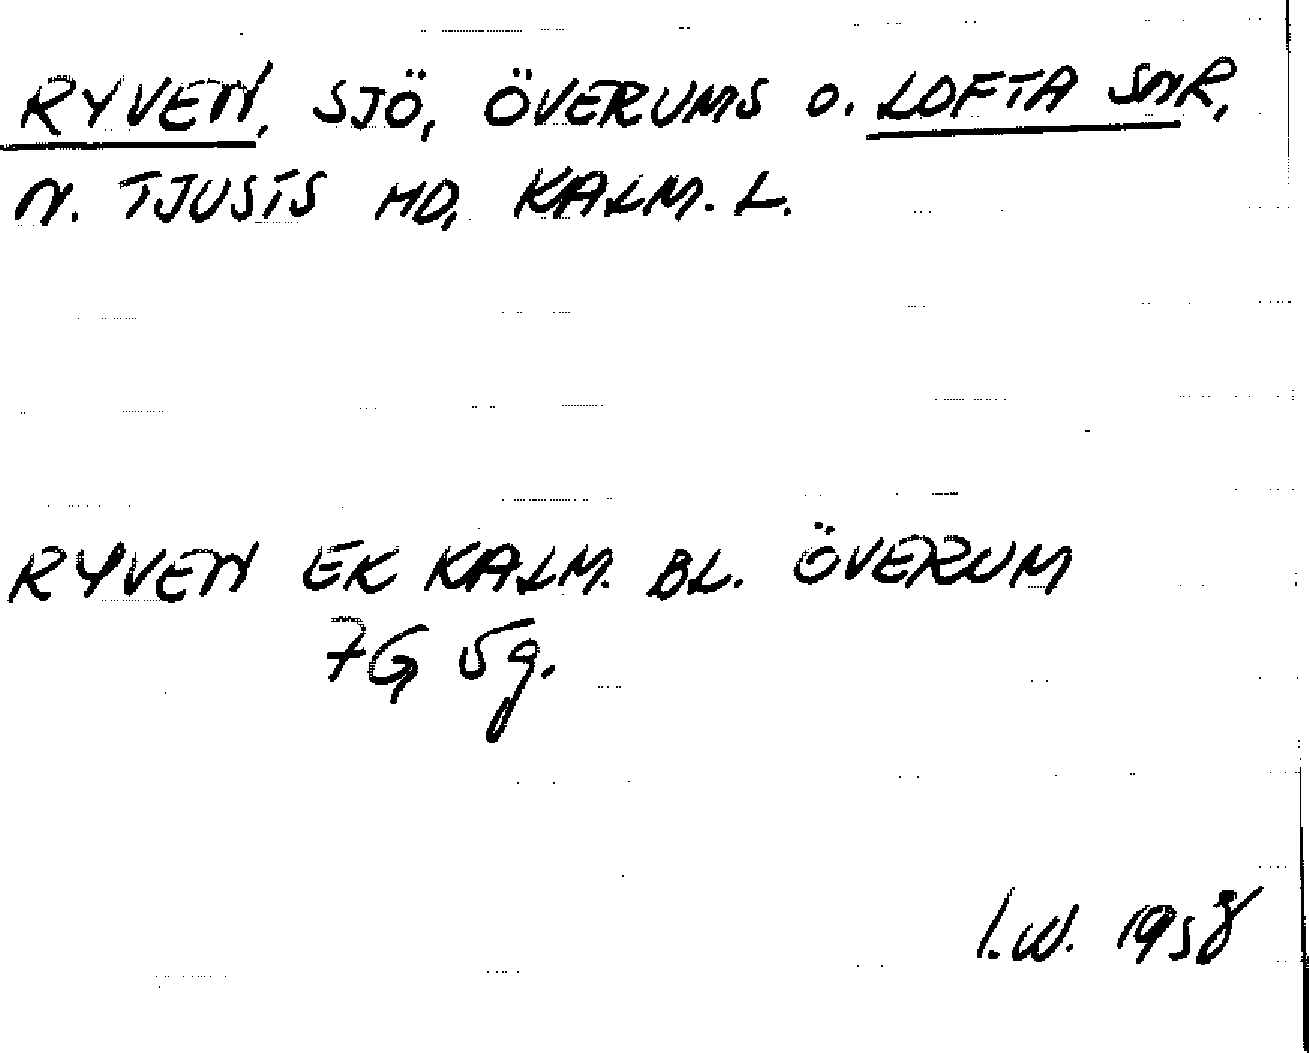 RYVEN, SJÖ, ÖVERUMS O. LOFTA SNR,
N. TJUSTS HD, KALM. L.
RYVEN EK KALM. BL. ÖVERUM
7G 5g.
I.W. 1958